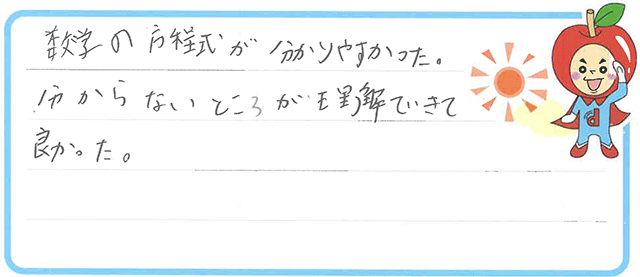 数学の方程式が分かりやすかった。
分からないところが理解でいきて
良かった。